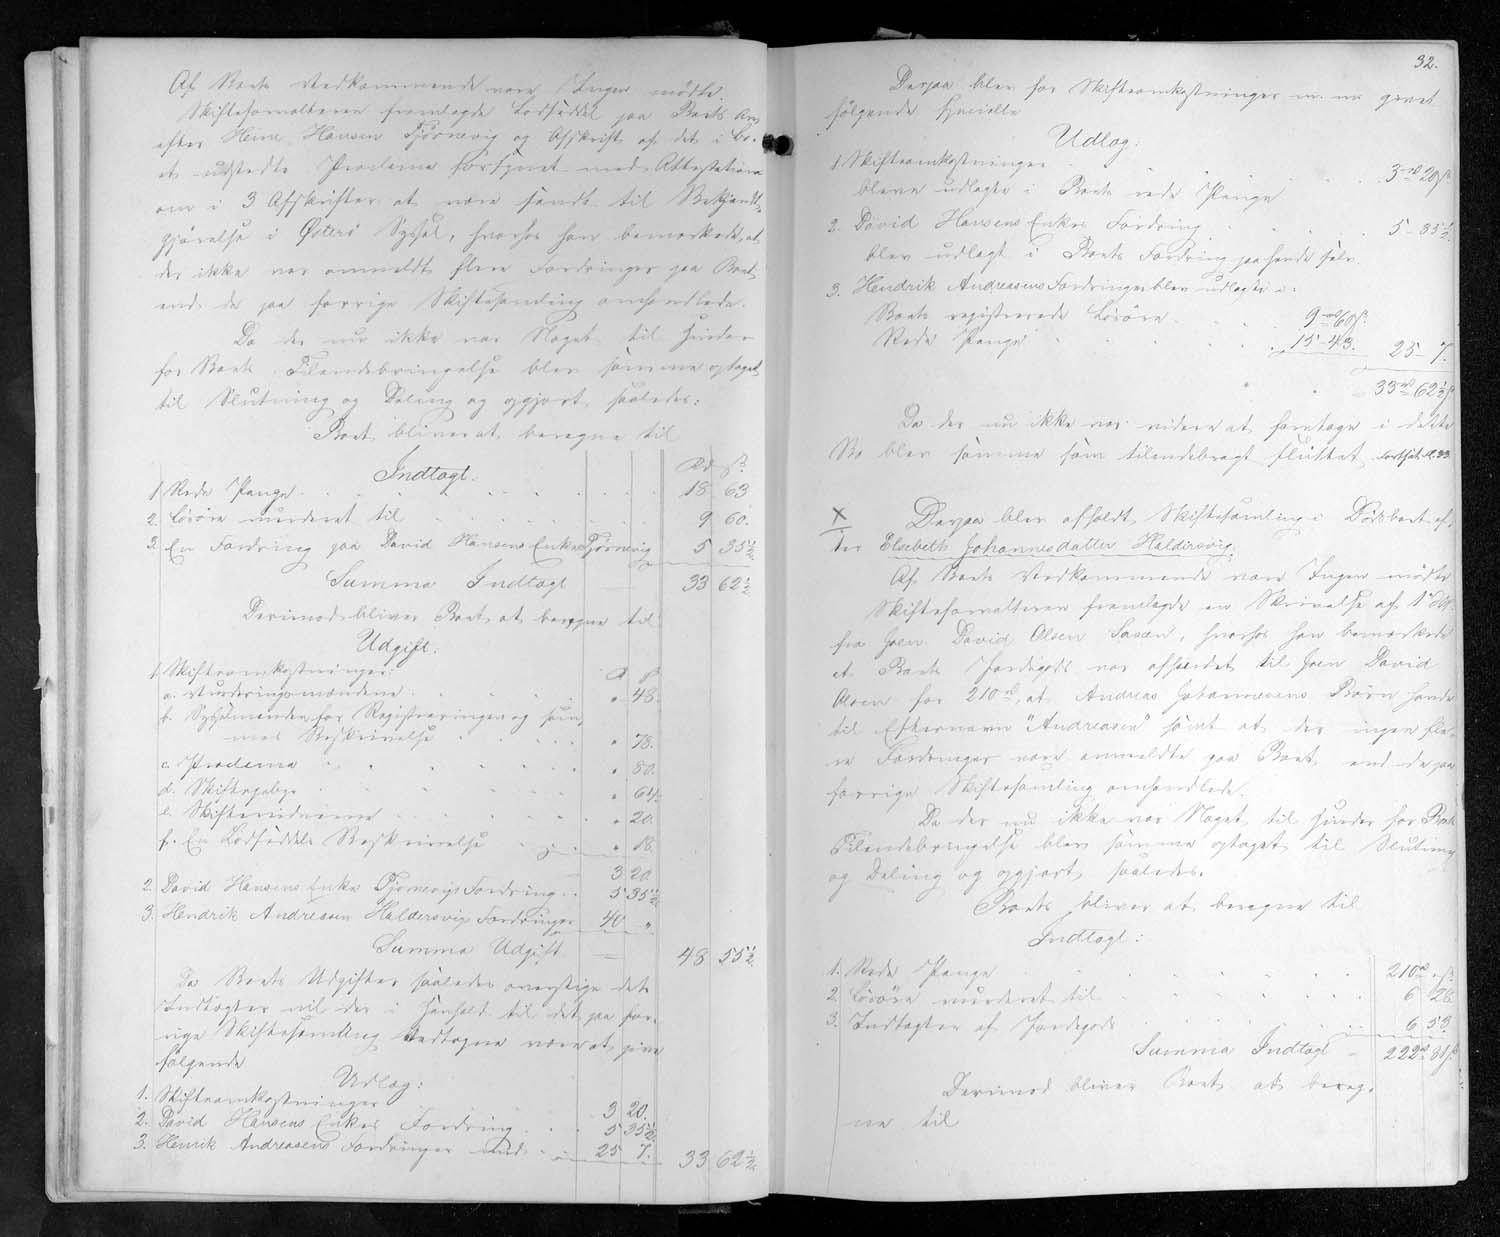 Af Boets Vedkommende vare Ingen mødte.
Skifteforvalteren fremlagde Lodseddel paa Boets Arv
efter Heine Hansen Tjørnevig og Afskrift af det i Bo-
et udstedte Proclama forsynet med Attestation
om i 3 Afskrifter at være sendt til Bekjendt-
gjørelse i Østerø Syssel, hvorhos han bemærkede, at
der ikke var anmeldt flere Fordringer paa Boet
end de paa forrige Skiftesamling omhandlede.
Da der nu ikke var Noget til Hinder
for Boets Tilendebringelse blev samme optaget
til Slutning og Deling og opgjort saaledes:
Boet bliver at beregne til
Indtægt: Rd. ß.
1. Rede Penge 18 63
2. Løsøre vurderet til 9 60.
3. En Fordring paa David Hansens Enke Tjørnevig 5 35½
Summa Indtægt 33 62½
Derimod bliver Boet at beregne til
Udgift:
1. Skifteomkostninger:
a. Vurderingsmændene " 48.
b. Sysselmanden for Registreringen og sam-
mes Beskrivelse " 78.
c. Proclama " 80.
d. Skiftegebyr " 64.
e. Skiftevidnerne " 20.
f. En Lodseddels Beskrivelse " 18.
3 20.
2. David Hansens Enke Tjørnevigs Fordring 5 35½
3. Hendrik Andreasen Haldersvigs Fordringer 40 "
Summa Udgift 48 55½
Da Boets Udgifter saaledes overstige dets
Indtægter vil der i Henhold til det paa for-
rige Skiftesamling Vedtagne være at give
følgende
Udlæg:
1. Skifteomkostninger 3 20.
2. David Hansens Enkes Fordring 5 35½
3. Henrik Andreasens Fordringer med 25 7. 33 62½
32.
Derpaa blev for Skifteomkostninger m. m. gjort
følgende specielle
Udlæg:
1. Skifteomkostninger 3 rd 20 ß
bleve udlagte i Boets rede Penge
2. David Hansens Enkes Fordring 5 - 35½
blev udlagt i Boets Fordring paa hende selv.
3. Hendrik Andreasens Fordringer blev udlagte i:
Boets registrerede Løsøre 9 rd 60 ß.
Rede Penge 15 - 43. 25 - 7.
33 rd 62½ ß
Da der nu ikke var videre at foretage i dette
Bo blev samme som tilendebragt sluttet fortsat F. 33.
X Derpaa blev afholdt Skiftesamling i Dødsboet ef-
ter Elsebeth Johannesdatter Haldersvig.
Af Boets Vedkommende vare Ingen mødte
Skifteforvalteren fremlagde en Skrivelse af 1' Oct.
fra Joen David Olsen Saxen, hvorhos han bemærkede
at Boets Jordegods var afhændet til Joen David
Olsen for 210 rd, at Andreas Johannesens Børn havde
til Efternavn "Andreasen" samt at der ingen fle-
re Fordringer vare anmeldte paa Boet end de paa
forrige Skiftesamling omhandlede.
Da der nu ikke var Noget til Hinder for Boets
Tilendebringelse blev samme optaget til Slutning
og Deling og opgjort saaledes.
Boets bliver at beregne til
Indtægt:
1. Rede Penge 210 rd " ß
2. Løsøre vurderet til 6 28.
3. Indtægter af Jordegods 6 53.
Summa Indtægt 222 rd 81 ß.
Derimod bliver Boet at bereg-
ne til